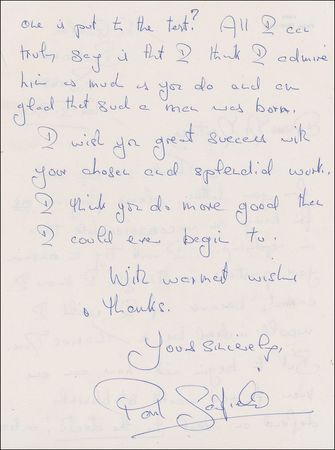 one is put to the test? All I can
truly say is that I think I admire
him as much as you do and am
glad that such a man was born.
I wish you great success with
your chosen and splendid work.
I think you do more good than
I could even begin to.
With warmest wishes
& thanks.
Yours sincerely,
Paul Scofield